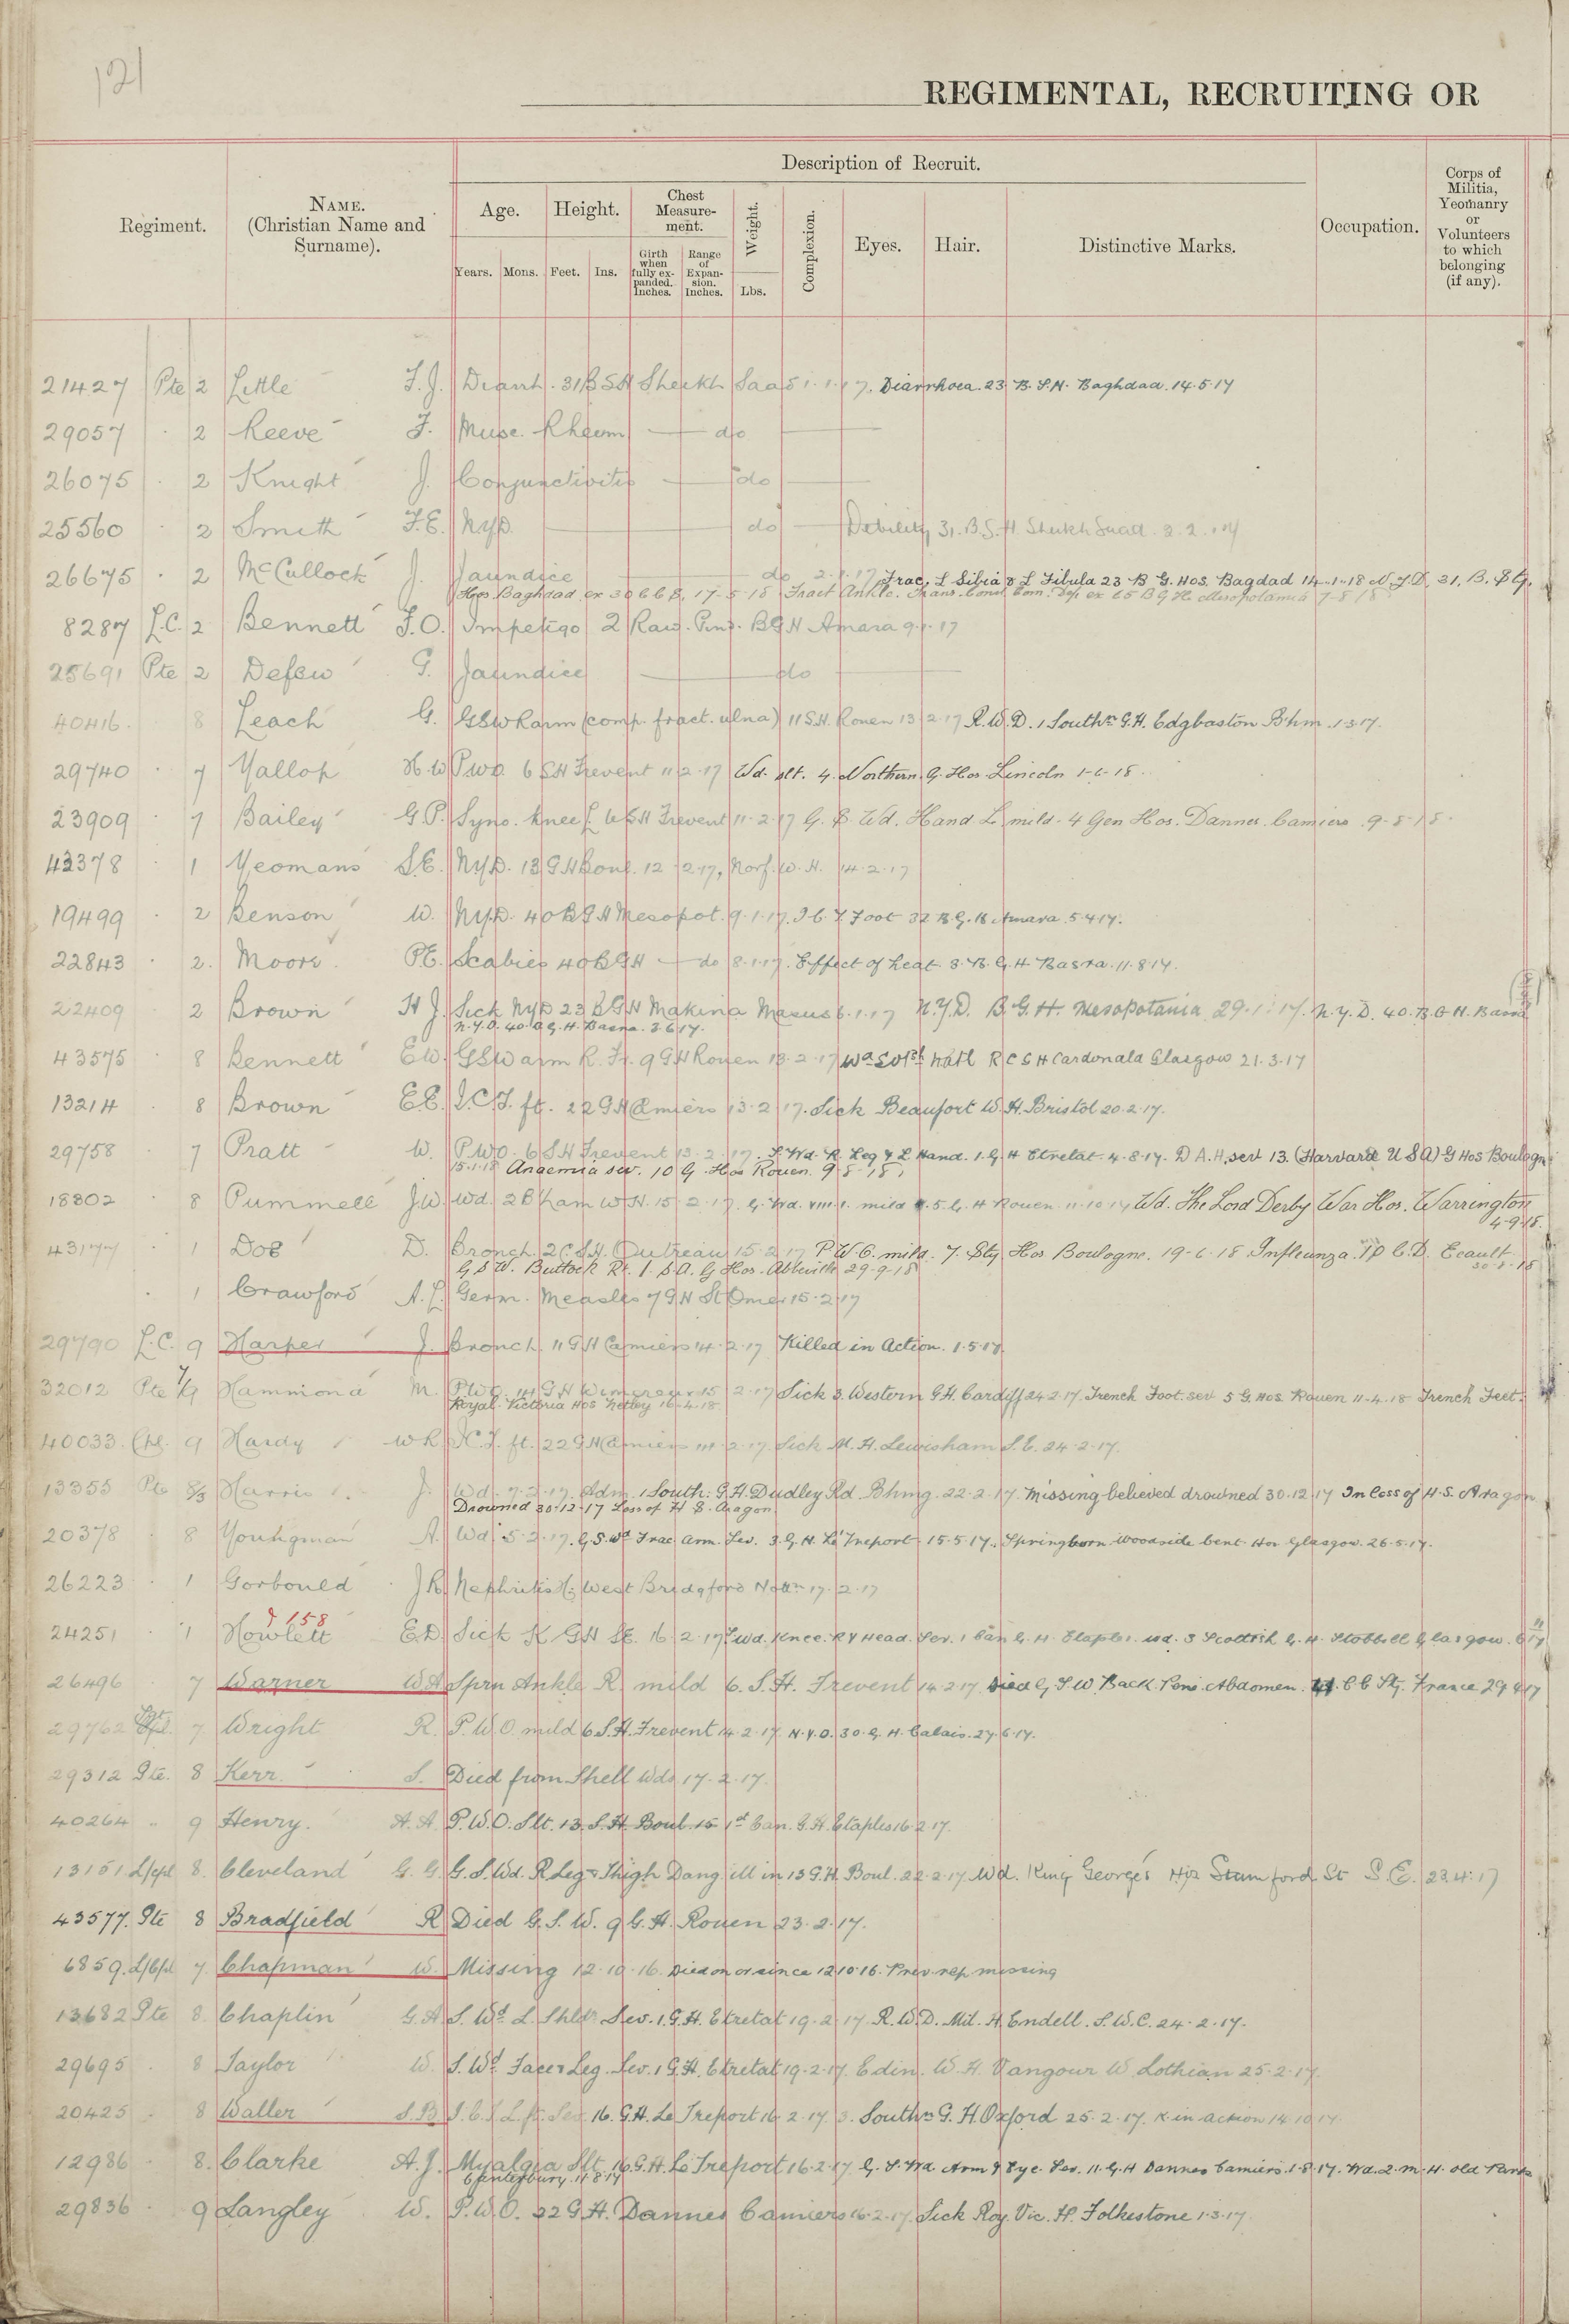 121
REGIMENTAL, RECRUITING OR
Description of Recruit.
Regiment.
NAME.
(Christian Name and
Surname).
Age.
Height.
Chest
Measure-
ment.
Weight.
Complexion.
Eyes.
Hair.
Distinctive Marks.
Occupation.
Corps of
Militia,
Yeomanry
or
Volunteers
to which
belonging
(if any).
Years.
Mons.
Feet.
Ins.
Girth
when
fully ex-
panded.
Inches.
Range
of
Expan-
sion.
Inches.
Lbs.
21427 Pte 2 Little F.J. Diarrh. 31 B S H Sheikh Saad 1.1.17. Diarrhoea. 23 B. S.H. Baghdad. 14.5.17
29057 . 2 Reeve F. Musc. Rheum — do —
26075 . 2 Knight J. Conjunctivitis — do —
25560 . 2 Smith F.E. NYD. — do — Debility 31. B.S.H Sheikh Saad. 3.2.17
26675 . 2 McCullock J. Jaundice — do 2.1.17 Frac. L Tibia & L Fibula 23 B G. Hos. Bagdad 14-1-18 N.Y.D. 31. B. Stg.
Hos. Baghdad ex 30 C C S. 17-5-18 Fract Ankle. Trans. Conv. Com. Dep. ex 65 B G H. Mesopotamia 7-8-18
8287 L.C. 2 Bennett F.O. Impetigo 2 Raw. Pind. BGH Amara 9.1.17
25691 Pte 2 Defew G. Jaundice — do —
40416. 8 Leach G. GSW R arm (comp. fract. ulna) 11 S.H. Rouen 13.2.17 R.W.D. 1 Southn G.H. Edgbaston Bhm. 1.3.17.
29740 . 7 Yallop H.W P.W.O. 6 SH Frevent 11.2.17 Wd. slt. 4. Northern G. Hos. Lincoln 1-6-18.
23909 . 7 Bailey G.P. Syno. Knee L 6 SH Frevent 11-2-17 G. S. Wd. Hand L mild. 4 Gen Hos. Dannes. Camiers. 9-5-18.
43378 . 1 Yeomans S.E. NYD. 13 G H Boul. 12.2.17, Norf. W. H. 14.2.17
19499 . 2 Benson W. NYD. 40 B G H Mesopot. 9.1.17. I.C.T. Foot 32 B G. H Amara. 5.4.17.
22843 . 2. Moore P.E. Scabies 40 B G H — do 8.1.17. Effect of heat 3. B. G. H Basra. 11.8.17.
22409 2 Brown H J. Sick NYD 23 B G H Makina Masus 6.1.17 N.Y.D. B.G.H. Mesopotania 29.1.17. N.Y.D. 40. B.G.H. Basra
N.Y.D. 40. B.G.H. Basra. 3.6.17.
43575 8 Bennett E.W. GSW arm R. Fr. 9 G H Rouen 13.2.17 Wd Scotsh Natl R C S H Cardonald Glasgow 21.3.17
13214 . 8 Brown E E. I.C.T. ft. 22 G H Camiers 13.2.17. Sick Beaufort W.H. Bristol 20.2.17.
29758 7 Pratt W. P.W.O. 6 S H Frevent 13.2.17. S Wd. R. Leg & L Hand. 1. G. H Etretat. 4.8.17. D A.H. sev 13. (Harvard U S A) G Hos Boulogne
15.1.18 Anaemia sev. 10 G. Hos Rouen. 9-5-18.
18802 8 Pummell J.W. Wd. 2 B'ham W H. 15.2.17. G. Wd. mild 5. G. H Rouen 11.10.17 Wd. The Lord Derby War Hos. Warrington
4-9-18.
43177 . 1 Doe D. Bronch. 2 C.S.H. Outreau 15.2.17 P.W.O. mild. 7. Sty Hos Boulogne. 19-6-18 Influenza. IP C.D. Ecault
G S W. Buttock Rt. 1. S.A. G Hos. Abbeville 29-9-18 30-6-18
. 1 Crawford A.L. Germ. Measles 7 G H St Omer 15.2.17
29790 L.C. 9 Harper J. Bronch 11 G H Camiers 14.2.17 Killed in Action. 1.5.17.
32012 Pte 7/9 Hammond M. P.W.O. 14 G H Wimereux 15.2.17 Sick 3. Western G.H. Cardiff 24.2.17. Trench Foot. sev 5 G. Hos. Rouen 11-4-18 Trench Feet.
Royal Victoria Hos Netley 16-4-18
40033. Cpl. 9 Hardy W R I.C.T. ft. 22 G H Camiers 14.2.17 Sick M.H. Lewisham S.E. 24.2.17.
13355 Pte 8/3 Harris J. Wd. 7.2.17. Adm. 1 South. G.H. Dudley Rd Bhmg. 22.2.17. Missing believed drowned 30.12.17 In loss of H.S. Aragon.
Drowned 30-12-17 Loss of H S. Aragon
20378 . 8 Youngman A. Wd. 5.2.17. G.S.Wd Frac. arm. Sev. 3. G. H. Le Treport. 15.5.17. Springborn Woodside Cent. Hos Glasgow. 26.5.17.
26223 . 1 Gorbould J R. Nephritis West Bridgford Nottm 17.2.17
2 158
24251 . 1 Howlett E.D. Sick K. G H SE. 16.2.17 Wd. Knee. R & Head. Sev. 1 Can G. H. Etaples. Wd. 3 Scottish G. H. Stobhill Glasgow. 6
26496 7 Warner W.A Sprn Ankle R. mild 6. S.H. Frevent 14.2.17 Died G S W Back Pene Abdomen. 41. C C Stg. France 29.4.17
29762 Cpl. 7. Wright R. P.W.O. mild 6 S.H. Frevent 14.2.17. N.Y.D. 30. G. H. Calais. 27.6.17.
29312 Pte. 8 Kerr. S. Died from Shell Wds 17.2.17.
40264 .. 9 Henry. A.A. P.W.O. Slt. 13. S.H. Boul. 15 1st Can. G.H. Etaples 16.2.17.
13151 L/cpl 8. Cleveland G. G. G.S.Wd. R Leg & Thigh Dang ill in 13 G.H. Boul. 22.2.17. Wd. King George's Hos Stamford St S.E. 23.4.17
43577. Pte 8 Bradfield R Died G.S.W. 9 G.H. Rouen 23.2.17.
6859. L/Cpl 7. Chapman W. Missing 12.10.16. Died on or since 12.10.16. Prev. rep missing
13682 Pte 8. Chaplin G.A S. Wd. L. Shldr Sev. 1. G.H. Etretat 19.2.17. R.W.D. Mil. H. Endell. S.W.C. 24.2.17.
29695 . 8 Taylor W. S. Wd. Face & Leg. Sev. 1 G.H. Etretat 19.2.17. Edin. W.H. Bangour W Lothian 25.2.17.
20425 . 8 Waller S.B I.C.T. L. ft. Sev. 16. G.H. Le Treport 16.2.17. 3. Southn G.H. Oxford 25.2.17. K. in action 14.10.17.
12986 . 8. Clarke A.J. Myalgia Slt. 16 G.H. Le Treport 16.2.17 G.S. Wd. Arm & Eye. Sev. 11. G.H Dannes Camiers. 1.8.17. Wd. 2. M. H. Old Park
Canterbury. 11.8.17
29836 . 9 Langley W. P.W.O. 22 G.H. Dannes Camiers 16.2.17 Sick Roy. Vic. H. Folkestone 1.3.17.